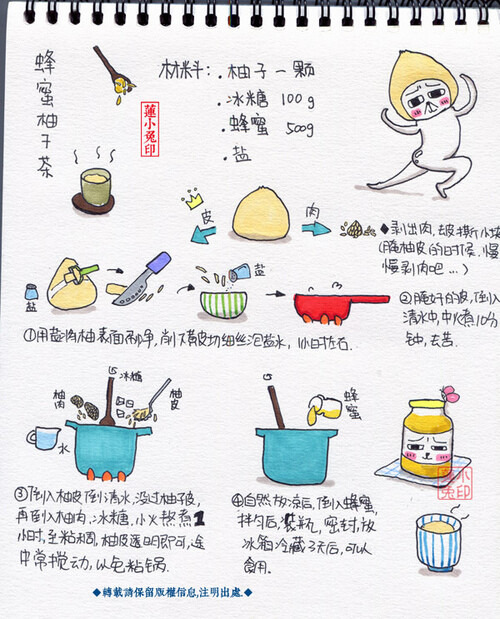 蜂蜜柚子茶
材料:
· 柚子 一颗
· 冰糖 100g
· 蜂蜜 500g
· 盐
莲小兔印
皮
肉
◆剥出肉,去皮撕小块
(腌柚皮的时候,慢
慢剥肉吧...)
盐
盐
①用盐将柚表面擦净,削下黄皮切细丝泡盐水,1小时左右.
②腌好的皮,倒入
清水中,中火煮10分
钟,去苦.
冰糖
柚肉
柚皮
水
蜂蜜
③倒入柚皮倒清水,没过柚子皮,
再倒入柚肉、冰糖,小火熬煮1
小时,至粘稠,柚皮透明即可,途
中常搅动,以免粘锅.
④自然放凉后,倒入蜂蜜,
拌匀后装瓶,密封,放
冰箱冷藏3天后,可以
食用.
◆轉載請保留版權信息,注明出處.◆